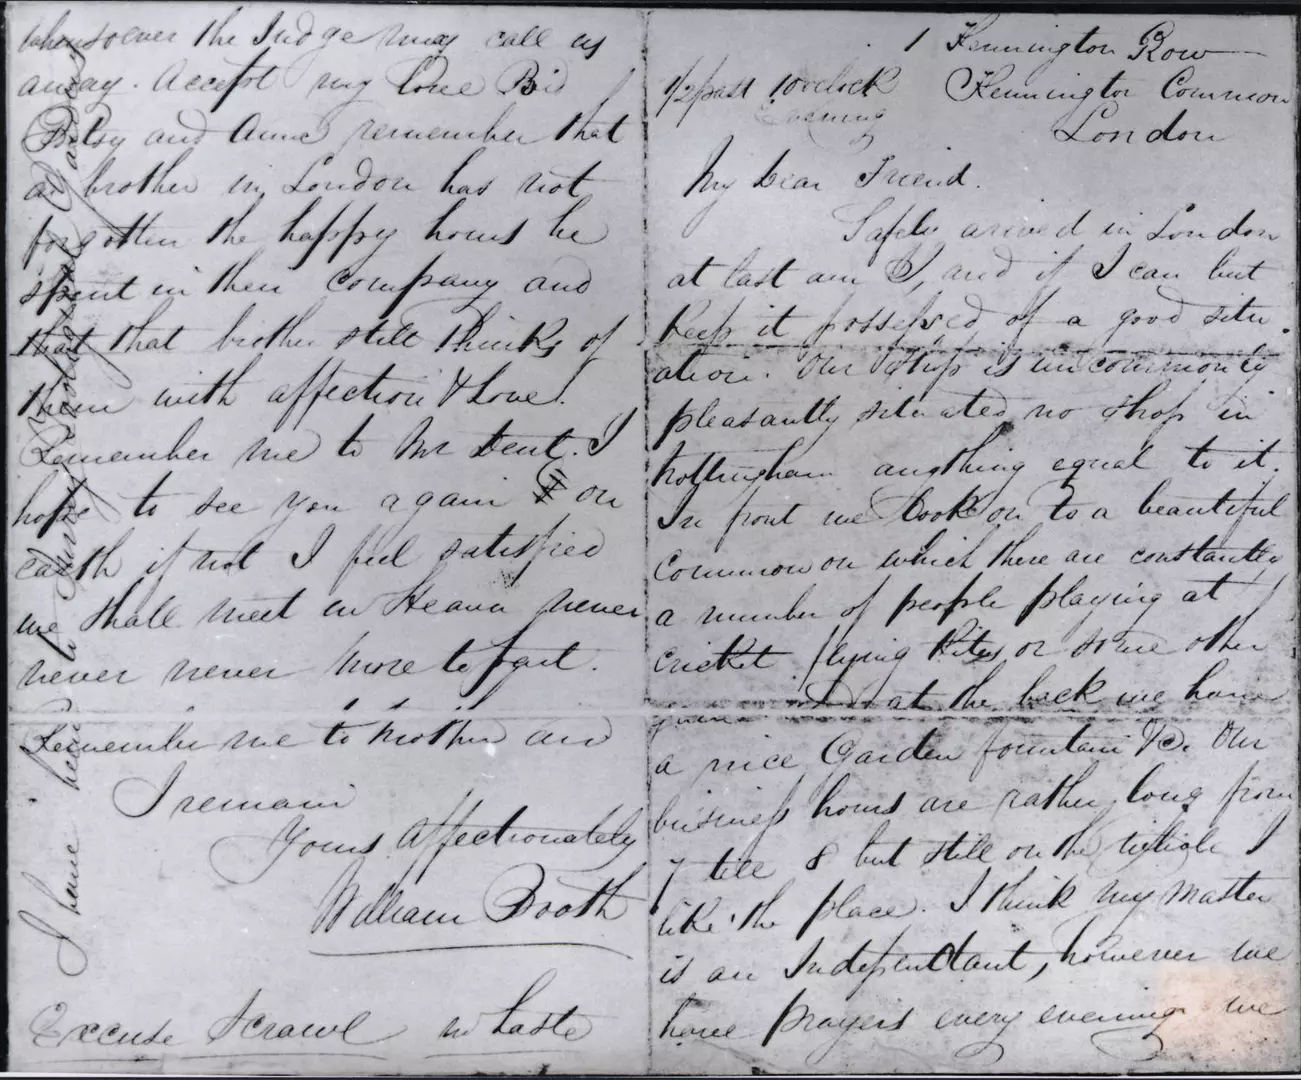 1 Kennington Row
1/2 past 10 o'clock Kennington Common
Evening London
My Dear Friend.
Safely arived in London
at last am I, and if I can but
keep it possessed of a good situ
ation. Our Shop is uncommonly
pleasantly situated no shop in
Nottingham anything equal to it.
In front we look on to a beautiful
Common on which there are constantly
a number of people playing at
cricket flying Kites or some other
at the back we have
a nice Garden fountain &c. Our
business hours are rather long from
7 till 8 but still on the I
like the place. I think my Master
is an Independant, however we
have prayers every evening we
whensoever the Judge may call us
away. Accept my Love Bid
Betsy and Anne remember that
a brother in London has not
forgotten the happy hours he
spent in their company and
that that brother still thinks of
them with affection & Love.
Remember me to Mr Dent. I
hope to see you again on
earth if not I feel satisfied
we shall meet in Heaven never
never never more to part.
Remember me to Mother and
I remain
Yours affectionately
William Booth
Excuse Scrawl in haste
I have been to Surry Zoological Gardens